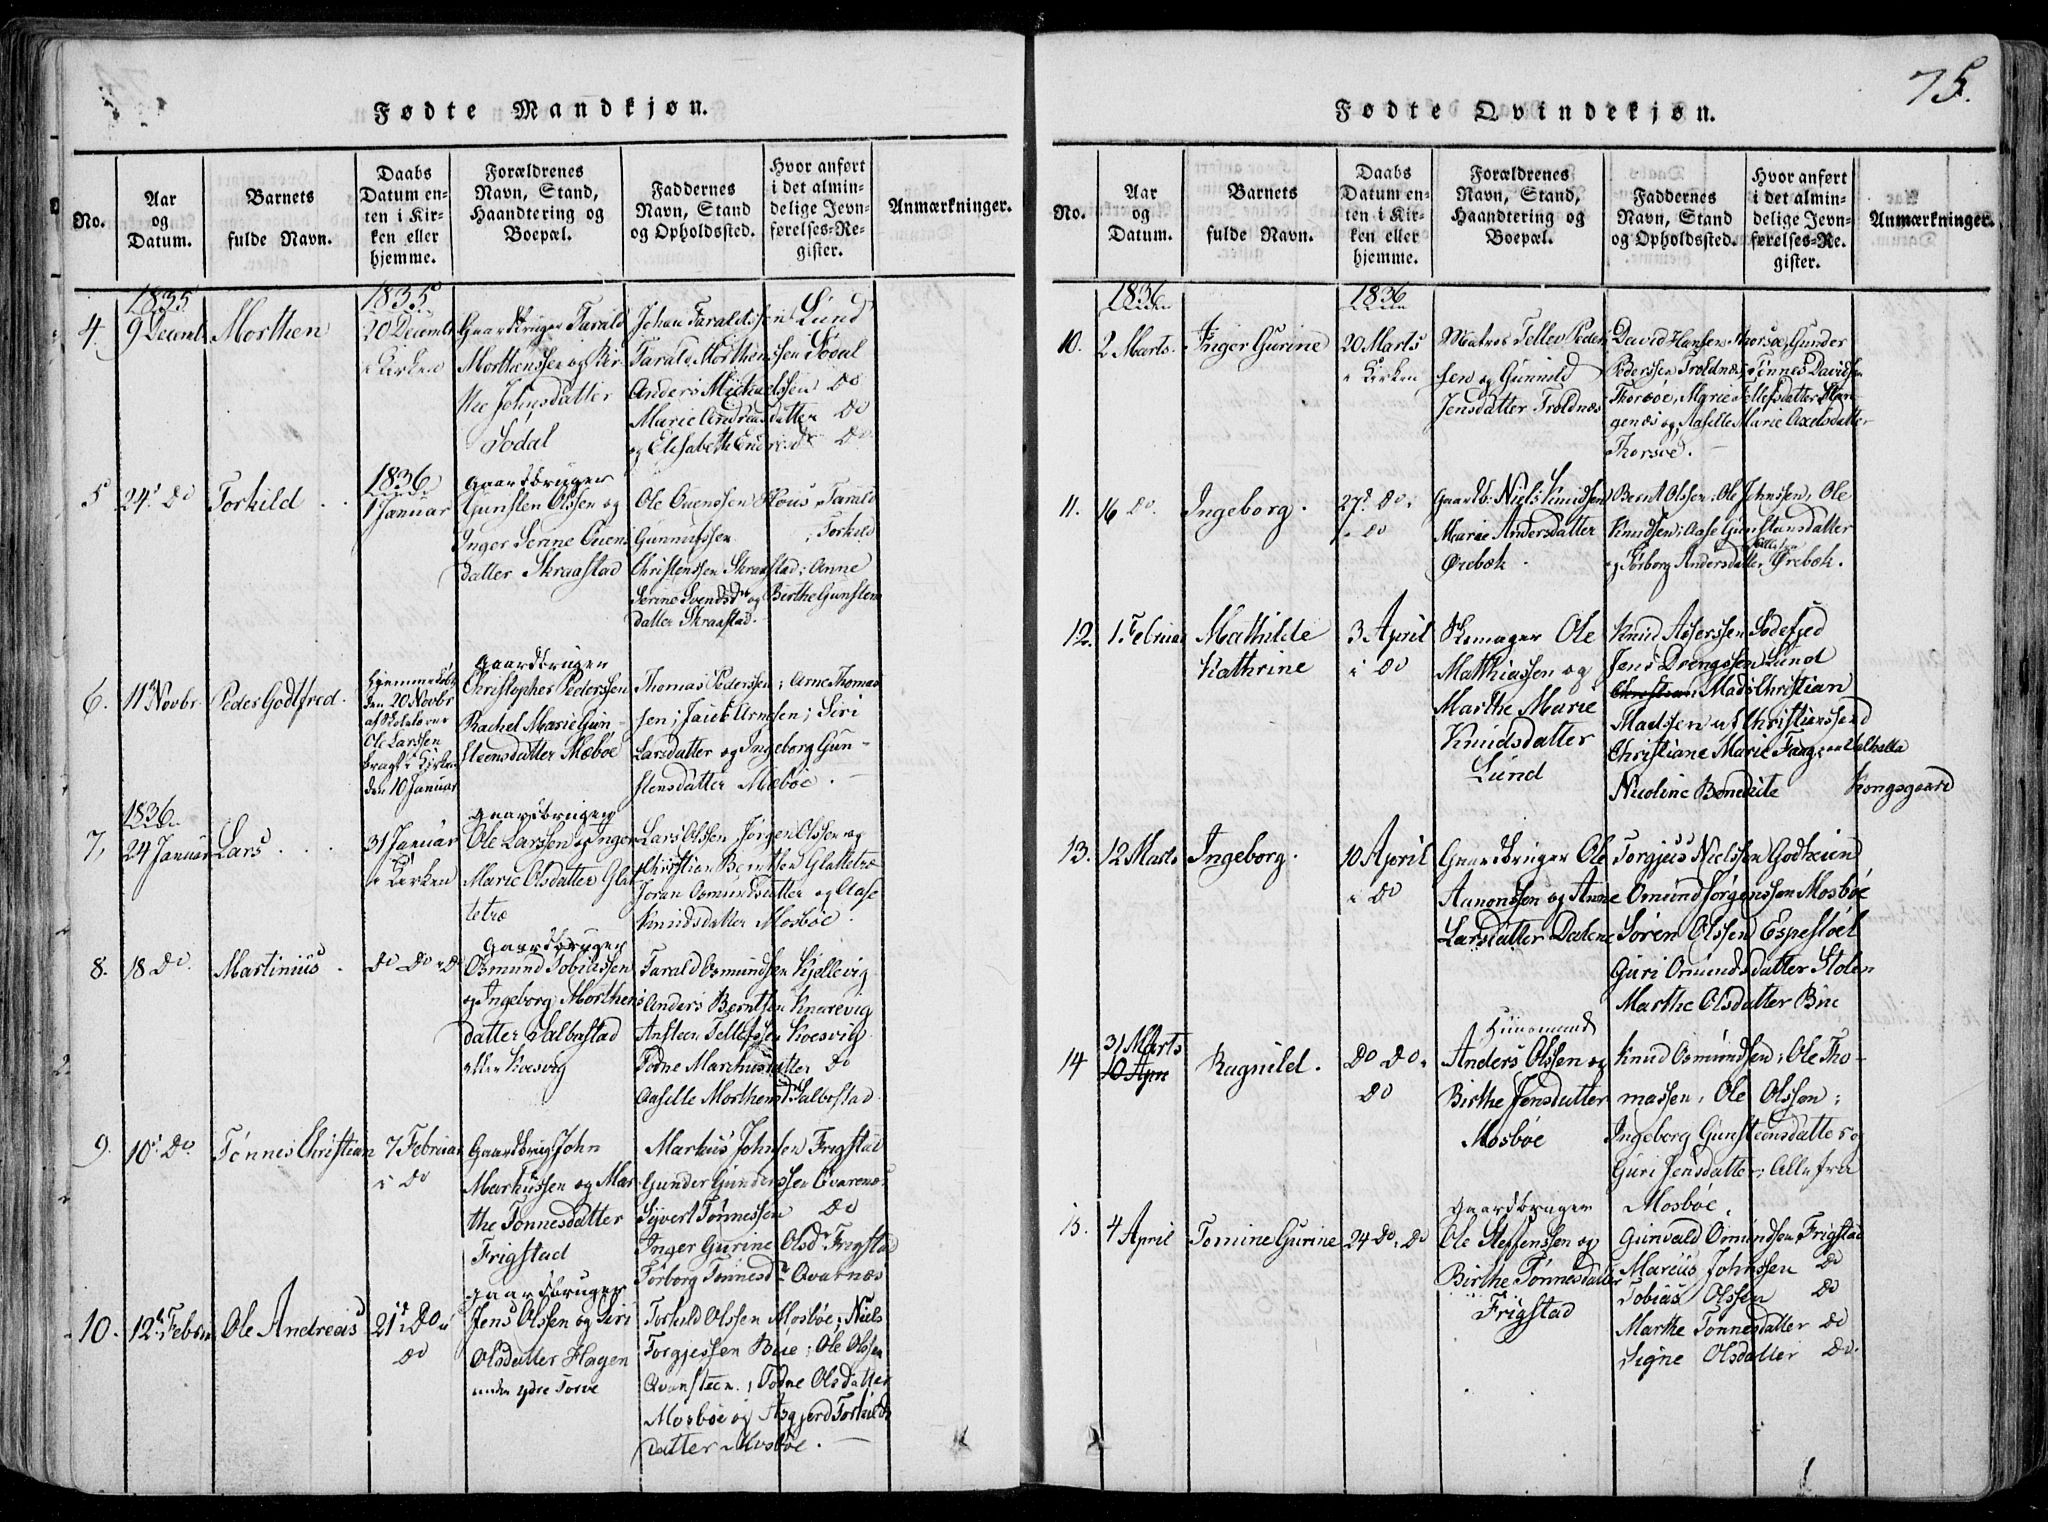 75.
Fødte Mandkjøn.
No.
Aar
og
Datum.
Barnets
fulde Navn.
Daabs
Datum en-
ten i Kir-
ken eller
hjemme.
Forældrenes
Navn, Stand,
Haandtering og
Boepæl.
Faddernes
Navn, Stand
og Opholdssted.
Hvor anført
i det almin-
delige Jevn-
førelses-Re-
gister.
Anmærkninger.
1835
4.
9 Decemb
Morthen
1835
20 Decembr
i Kirken
Gaardbruger Tarald
Morthenssen og Bir-
the Johnsdatter
Sodal
Johan Taraldssen Lund
Tarald Morthenssen Sodal
Anders Michaelssen Do
Marie Andreasdatter Do
og Elisabeth Do
5
24 Do
Torkild
1836
1 Januar
Gaardbruger
Gunsten Olssen og
Inger Serine Ouens
datter Skraastad
Ole Ouenssen Flous, Tarald
Gunnufssen, Torkild
Christenssen Skraastad; Anne
Serine Svendsd og Birthe Gunstens
datter Skraastad.
6.
11 Novbr
Peder Godtfred.
Hjemmedøbt
den 20 Novbr
af Skolelærer
Ole Larssen
bragt i Kirken
den 10 Januar
Gaardbruger
Christopher Pederssen
Rachel Marie Gun-
steensdatter Mæbøe
Thomas Pederssen; Arne Thomas
sen; Siri
Larsdatter og Ingeborg Gun-
stensdatter Mæbøe.
1836
7,
24 Januar
Lars
31 Januar
i Kirken
Gaardbruger
Ole Larssen og Inger
Marie Olsdatter Glat-
tetræ
Lars Olssen Jørgen Olssen og
Christian Berntsen Glattetræ
Joran Osmundsdatter og Aase
Knudsdatter Mosbøe.
8.
18 Do.
Martinius
Do Do Do
Gaardbruger
Osmund Tobiassen
og Ingeborg Morthens
datter Salbostad
Kosvig
Tarald Osmundsen Kjellevig
Anders Berntsen Knarevig
Ansteen Tellefssen Kosvig
Todne Marchusdatter Do
Aaselle Morthensd Salbostad
9.
10 Do.
Tønnes Christian
7 Februar
i Do
Gaardbrug John
Markussen og Mar-
the Tønnesdatter
Frigstad
Markus Johnsen Frigstad
Gunder Gunderssen Qvarenæs
Sÿvert Tønnessen Do
Inger Gurine Olsdr Frigstad
Torborg Tønnesdr Qvarnæs
10.
12 Februar
Ole Andreas
21 Do i
Do
Gaardbruger
Jens Olssen og Siri
Olsdatter Hagen
under ydre Torve
Torkild Olssen Mosbøe; Niels
Torgjessen Bue; Ole Olssen
Qvansteen; Todne Olsdatter
Mosbøe og Asgjerd Torkilds
datter Mosbøe.
Fødte Qvindekjøn.
No.
Aar
og
Datum.
Barnets
fulde Navn.
Daabs
Datum en-
ten i Kir-
ken eller
hjemme.
Forældrenes
Navn, Stand,
Haandtering og
Boepæl.
Faddernes
Navn, Stand
og Opholdssted.
Hvor anført
i det almin-
delige Jevn-
førelses-Re-
gister.
Anmærkninger.
1836
10.
2 Marts.
Inger Gurine
1836
20 Marts
i Kirken
Matros Tellev Peder
sen og Gunnild
Jensdatter Troldnæs
David Hansen Thorsøe, Gunder
Pederssen Troldnæs; Tønnes Davidsen
Thorsøe, Marie Tellefsdatter Stan-
genæs og Aaselle Marie Axelsdatter
Thorsøe.
11.
16 Do.
Ingeborg.
27 Do
i Do
Gaardb: Niels Knudsen
Marie Andersdatter
Ørebæk
Bernt Olssen; Ole Johnssen, Ole
Knudsen; Aase Gunstensdatter
og Torborg Andersdatter Ørebæk.
12.
1. Februar
Mathilde
Kathrine
3 April
i Do
Skomager Ole
Matthiassen og
Marthe Marie
Knudsdatter
Lund
Knud Asserssen Sødefjed
Jens Drengssen Lund
Christian Mads Christian
Madssen af Christianssand
Christiane Marie
Nicoline Kongsgaard
13.
12 Marts
Ingeborg.
10 April
i Do
Gaardbruger Ole
Aanonssen og Anne
Larsdatter Dalene
Torgjus Nielssen Godheien
Omund Jørgenssen Mosbøe
Søren Olssen Espestøel
Guri Omundsdatter Stolen
Marthe Olsdatter Bue
14
31 Marts
10 Apr
Ragnild.
Do Do
Do
Huusmand
Anders Olssen og
Birthe Jensdatter
Mosbøe
Knud Osmundsen; Ole Tho-
massen; Ole Olsson;
Ingeborg Gunsteensdatter og
Guri Jensdatter; Alle fra
Mosbøe.
15.
4 April
Tomine Gurine
24 Do i Do
Gaardbruger
Ole Steffenssen og
Birthe Tønnesdatter
Frigstad
Gunvald Omundsen Frigstad
Marcus Johnssen Do
Tobias Olssen Do
Marthe Tønnesdatter Do
Signe Olsdatter Do.